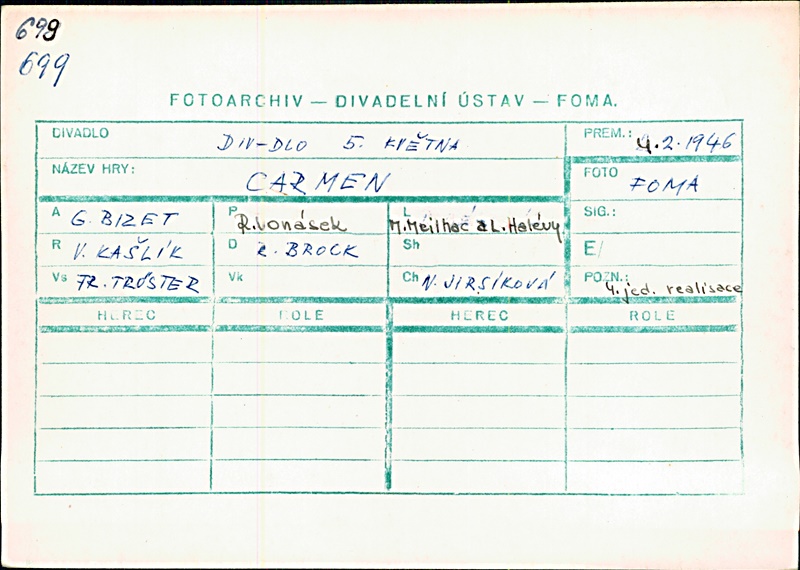 699
699
FOTOARCHIV — DIVADELNÍ ÚSTAV — FOMA.
DIVADLO DIV-DLO 5. KVĚTNA PREM.: 4.2.1946
NÁZEV HRY: CARMEN FOTO FOMA
A G. BIZET P R. Vonásek L M. Meilhac a L. Halévy SIG.:
R V. KAŠLÍK D R. BROCK Sh E/
Vs FR. TRÖSTER Vk Ch N. JIRSÍKOVÁ POZN.: 4. jed. realisace
HEREC ROLE HEREC ROLE